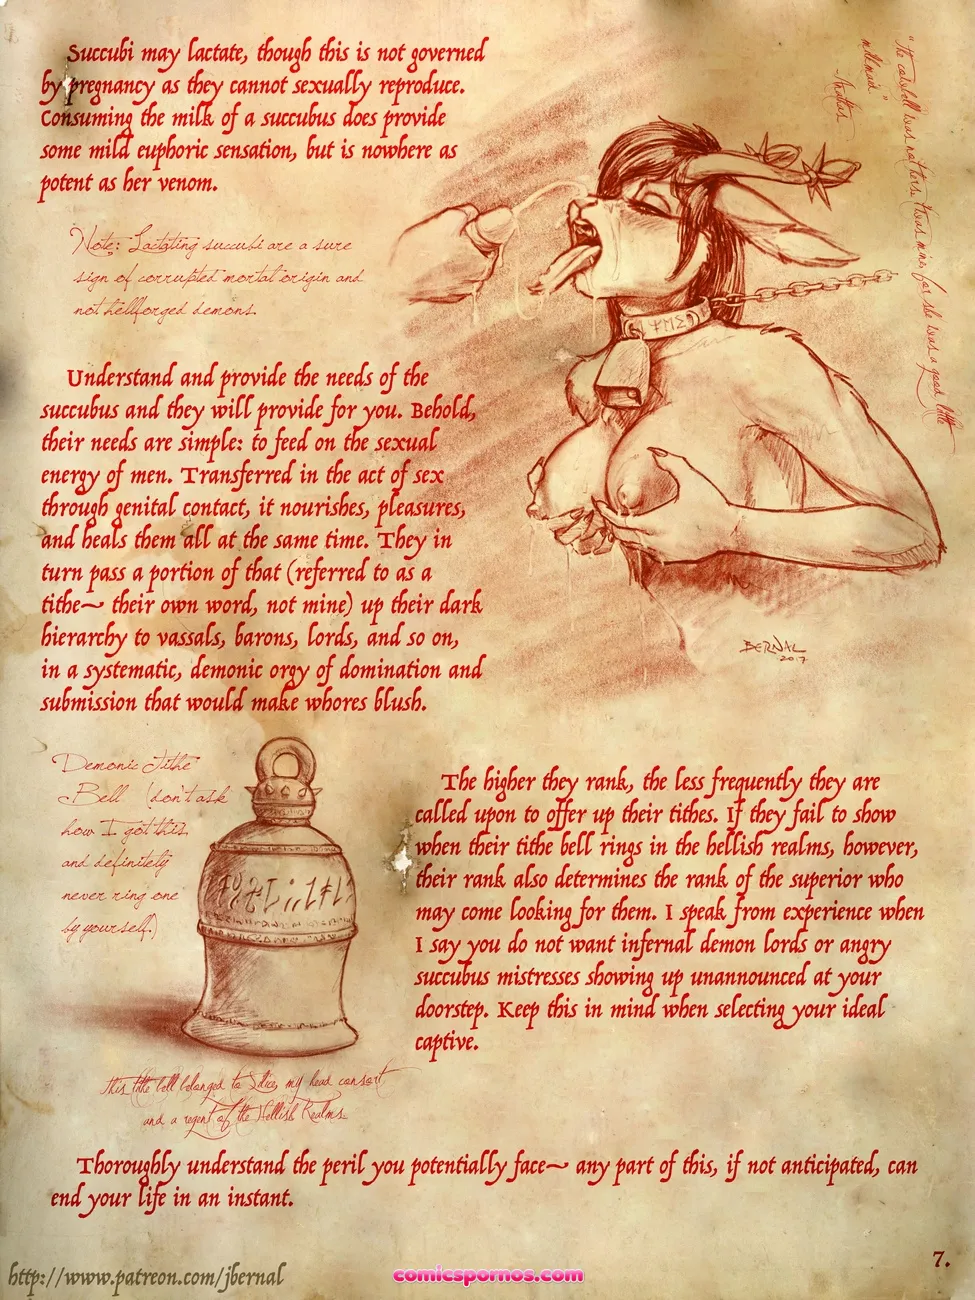 Succubi may lactate, though this is not governed
by pregnancy as they cannot sexually reproduce.
Consuming the milk of a succubus does provide
some mild euphoric sensation, but is nowhere as
potent as her venom.
Note: Lactating succubi are a sure
sign of corrupted mortal origin and
not hellforged demons.
"The cowbell was not hers, twas mine for she was a good little
milkmaid."
Understand and provide the needs of the
succubus and they will provide for you. Behold,
their needs are simple: to feed on the sexual
energy of men. Transferred in the act of sex
through genital contact, it nourishes, pleasures,
and heals them all at the same time. They in
turn pass a portion of that (referred to as a
tithe~ their own word, not mine) up their dark
hierarchy to vassals, barons, lords, and so on,
in a systematic, demonic orgy of domination and
submission that would make whores blush.
BERNAL
2017
Demonic Tithe
Bell (don't ask
how I got this
and definitely
never ring one
by yourself.)
The higher they rank, the less frequently they are
called upon to offer up their tithes. If they fail to show
when their tithe bell rings in the hellish realms, however,
their rank also determines the rank of the superior who
may come looking for them. I speak from experience when
I say you do not want infernal demon lords or angry
succubus mistresses showing up unannounced at your
doorstep. Keep this in mind when selecting your ideal
captive.
this tithe bell belonged to my head consort
and a regent of the Hellish Realms
Thoroughly understand the peril you potentially face~ any part of this, if not anticipated, can
end your life in an instant.
7.
http://www.patreon.com/jbernal
comicspornos.com